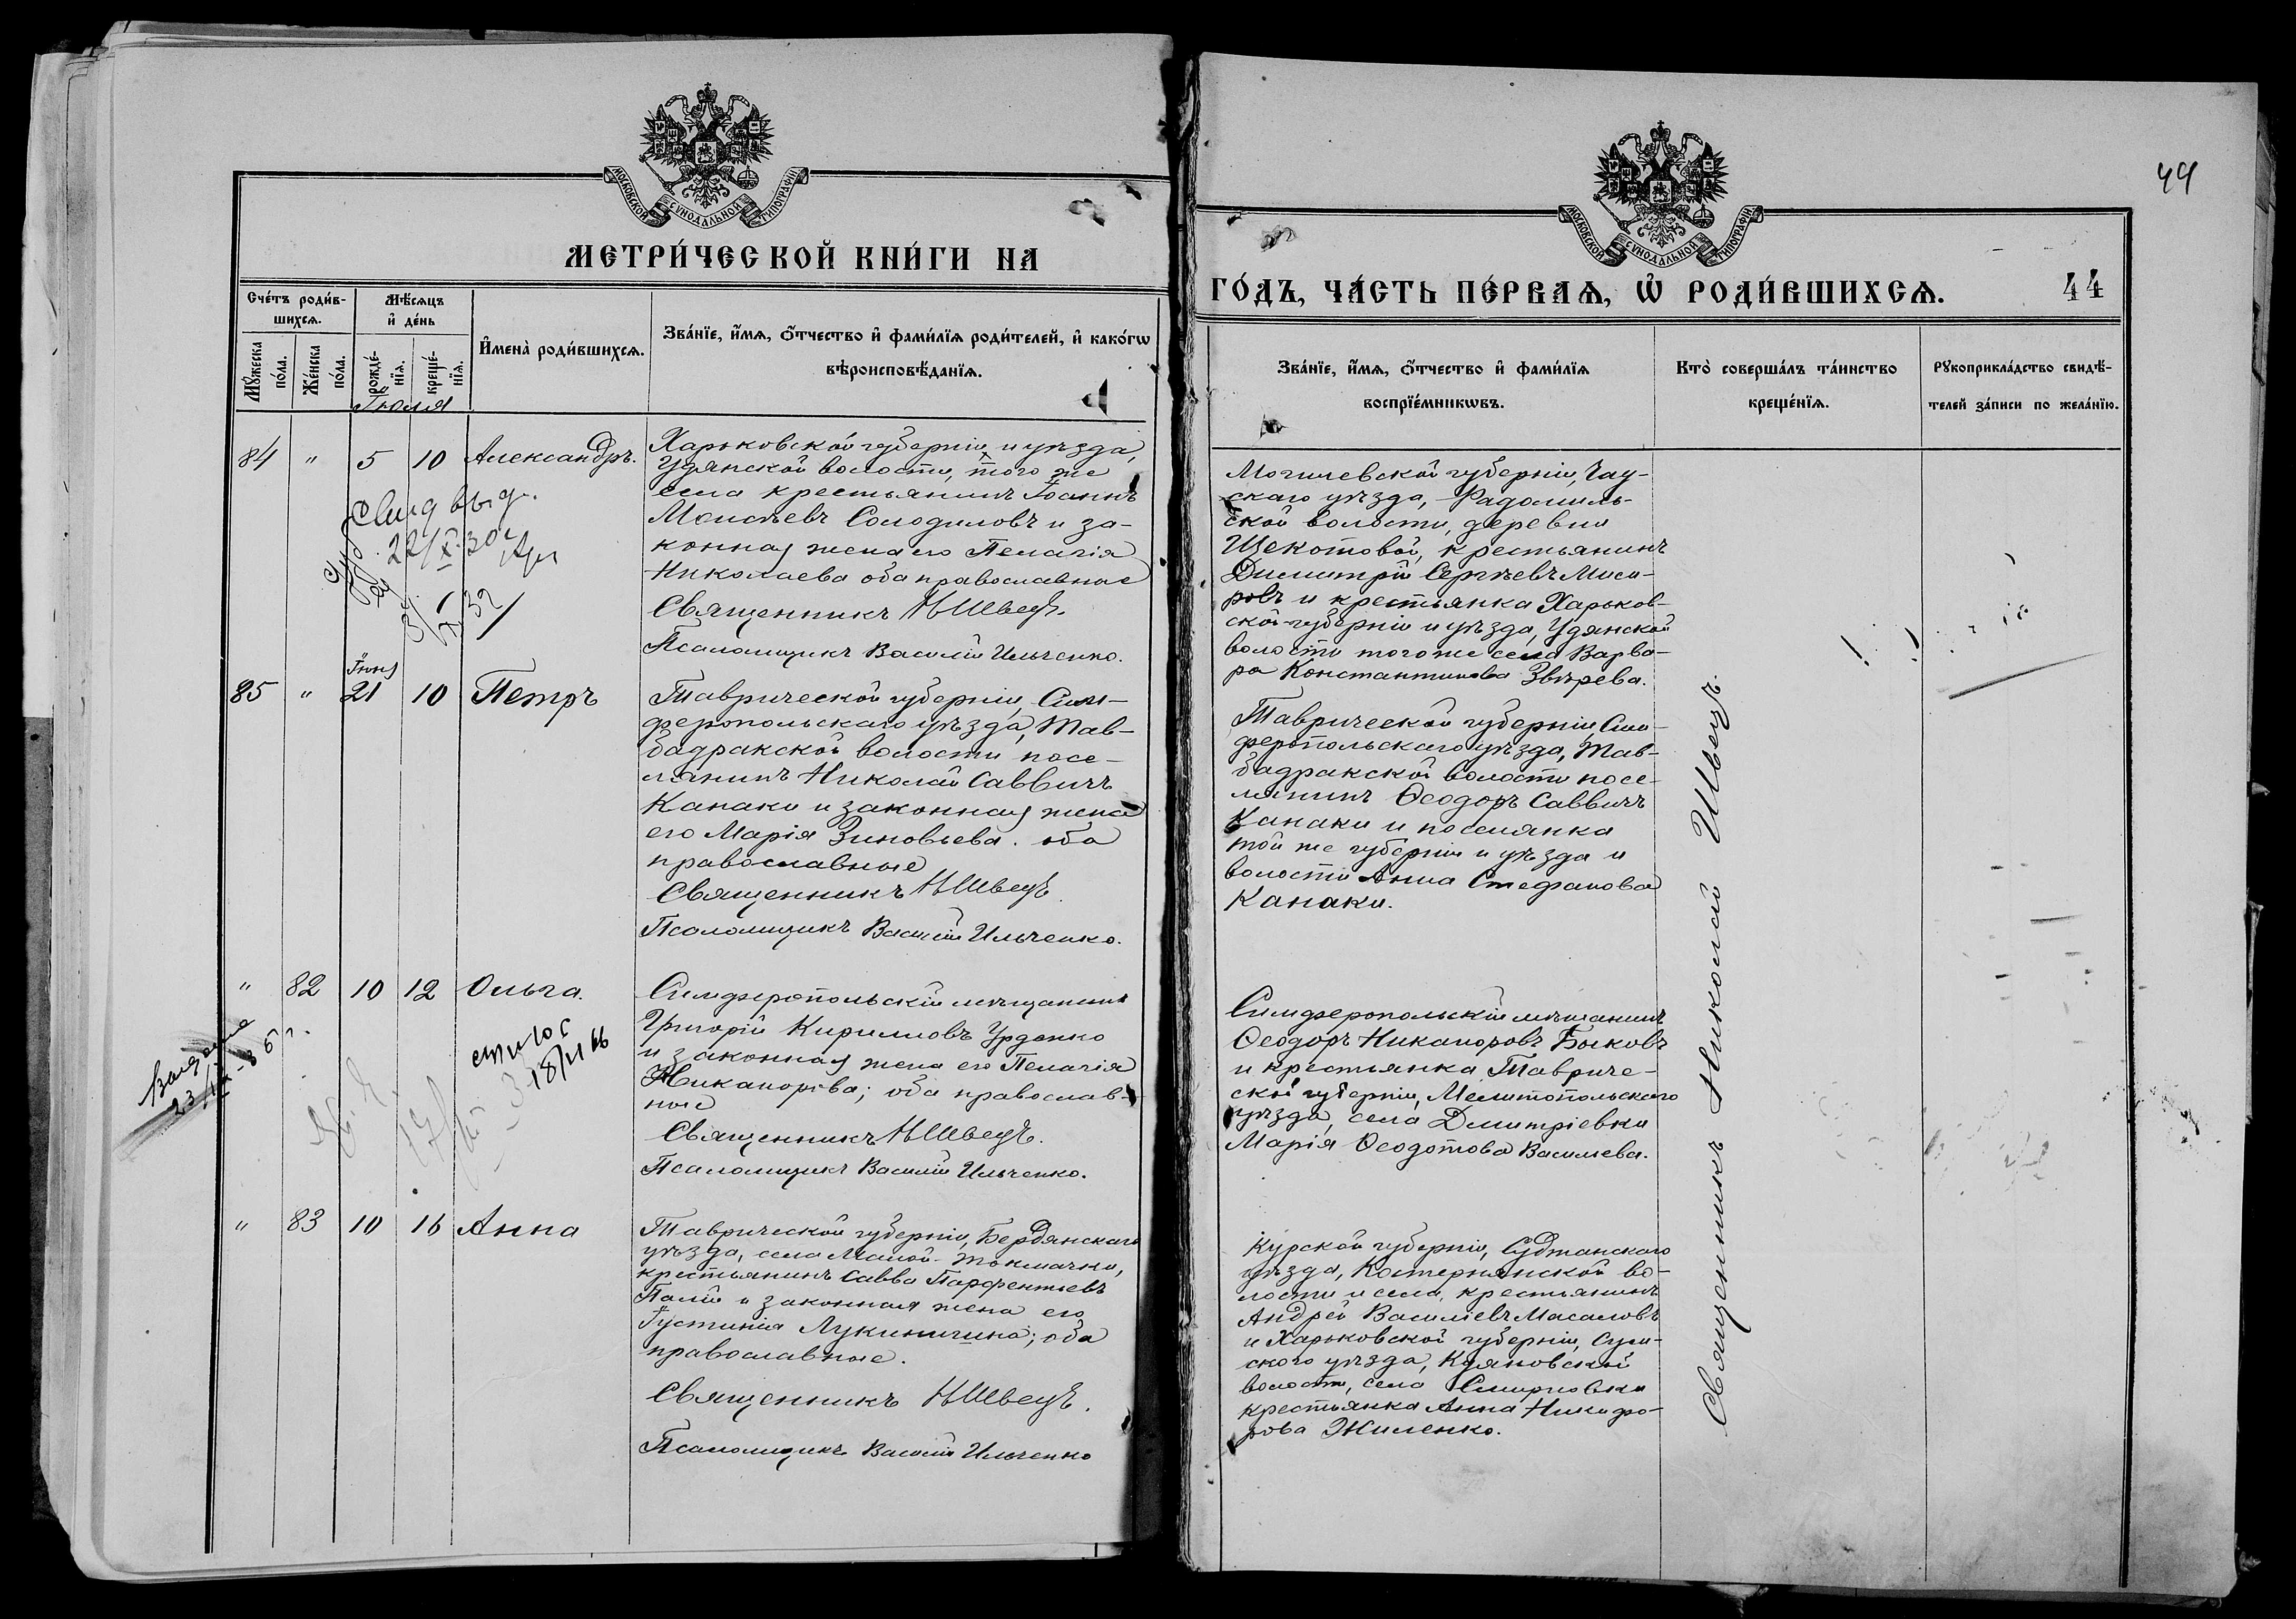 МОСКОВСКОЙ СѴНОДАЛЬНОЙ ТИПОГРАФІИ
МЕТРИ́ЧЕСКОЙ КНИ́ГИ НА
Сче́тъ роди́в-
шихсѧ.
Мѣ́сѧцъ
и҆ де́нь
И҆мена̀ роди́вшихсѧ.
Зва́нїе, и҆́мѧ, ѻ҆́тчество и҆ фами́лїѧ роди́телей, и҆ како́гѡ
вѣроисповѣ́данїѧ.
Мꙋ́жеска
по́ла.
Же́нска
по́ла.
рожде́-
нїѧ.
креще́-
нїѧ.
Іюля
84 " 5 10 Александръ.
Харьковской губерніи и уѣзда,
Удянской волости, того же
села крестьянинъ Іоаннъ
Моисѣевъ Солодиловъ и за-
конная жена его Пелагія
Николаева оба православные
Священникъ Н Швецъ.
Псаломщикъ Василій Ильченко.
Свид выд.
22/X 30
Іюня
85 " 21 10 Петръ
Таврической губерніи, Сим-
феропольскаго уѣзда, Тав-
бадракской волости посе-
лянинъ Николай Саввичъ
Канаки и законная жена
его Марія Зиновьева. оба
православные
Священникъ Н Швецъ.
Псаломщикъ Василій Ильченко.
" 82 10 12 Ольга.
Симферопольскій мѣщанинъ
Григорій Кирилловъ Урденко
и законная жена его Пелагія
Никанорова; оба православ-
ные
Священникъ Н Швецъ.
Псаломщикъ Василій Ильченко.
" 83 10 16 Анна
Таврической губерніи, Бердянскаго
уѣзда, села Малой-Токмачки,
крестьянинъ Савва Парфентьевъ
Палій и законная жена его
Іустинія Лукинична; оба
православные.
Священникъ Н Швецъ.
Псаломщикъ Василій Ильченко
44
МОСКОВСКОЙ СѴНОДАЛЬНОЙ ТИПОГРАФІИ
ГО́ДЪ, ЧА́СТЬ ПЕ́РВАѦ, Ѡ҆ РОДИ́ВШИХСѦ. 44
Зва́нїе, и҆́мѧ, ѻ҆́тчество и҆ фами́лїѧ
воспрїе́мникѡвъ.
Кто̀ соверша́лъ та́инство
креще́нїѧ.
Рꙋкоприкла́дство свидѣ́-
телей за́писи по жела́нїю.
Могилевской губерніи, Чау-
скаго уѣзда, Радомиль-
ской волости, деревни
Щекотовой, крестьянинъ
Димитрій Сергѣевъ Миси-
ровъ и крестьянка Харьков-
ской губерніи и уѣзда, Удянской
волости того же села Варва-
ра Константинова Звѣрева.
Таврической губерніи, Сим-
феропольскаго уѣзда, Тав-
бадракской волости посе-
лянинъ Ѳеодоръ Саввичъ
Канаки и поселянка
той же губерніи и уѣзда и
волости Анна Стефанова
Канаки.
Симферопольскій мѣщанинъ
Ѳеодоръ Никаноровъ Быковъ
и крестьянка Тавриче-
ской губерніи, Мелитопольскаго
уѣзда, села Димитріевки
Марія Ѳеодотова Васильева.
Курской губерніи, Суджанскаго
уѣзда, Костернянской во-
лости и села, крестьянинъ
Андрей Василіевъ Масаловъ
и Харьковской губерніи, Сум-
ского уѣзда, Кулновской
волости, села Смирновки
крестьянка Анна Никифо-
рова Жиленко.
Священникъ Николай Швецъ.